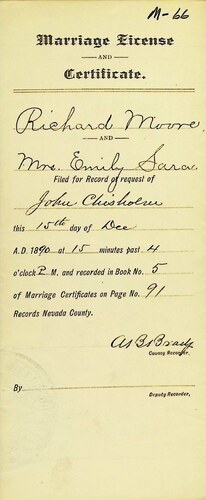 M-66
Marriage License
AND
Certificate.
Richard Moore
AND
Mrs. Emily Sara
Filed for Record at request of
John Chisholm
this 15th day of Dec
A.D. 1890 at 15 minutes past 4
o'clock P. M. and recorded in Book No. 5
of Marriage Certificates on Page No. 91
Records Nevada County.
County Recorder.
By
Deputy Recorder.